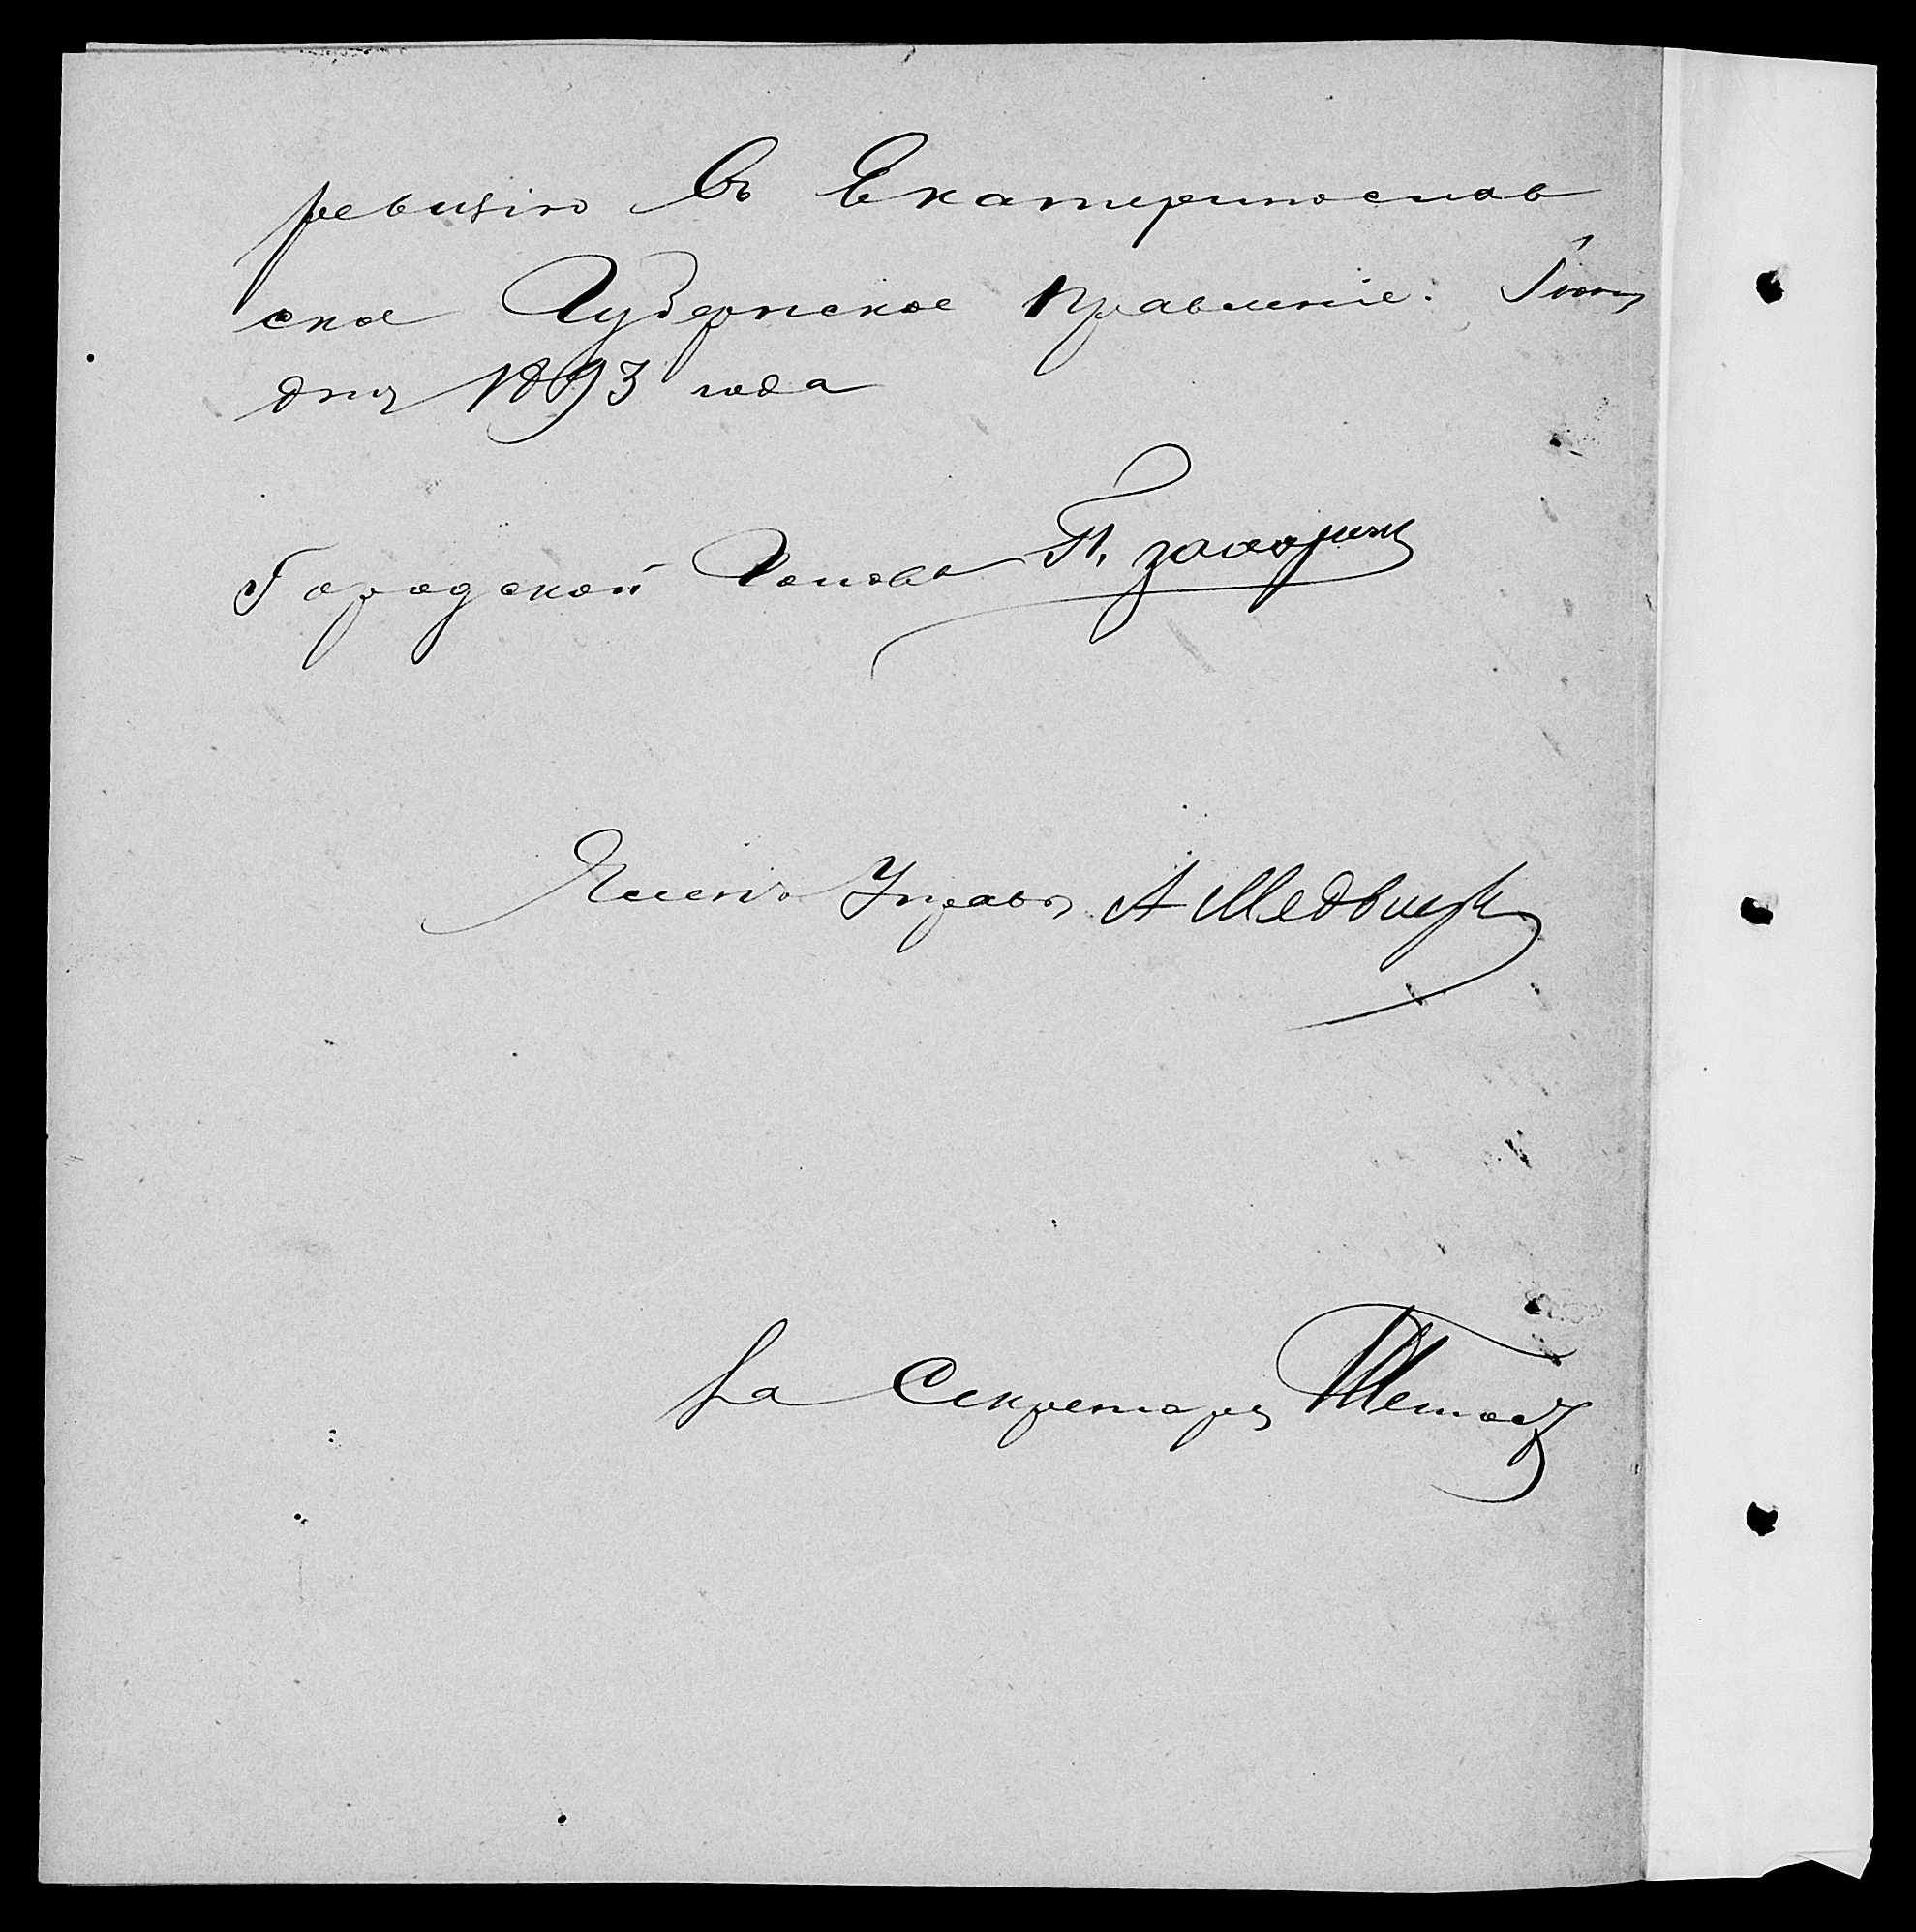 ревизію въ Екатеринослав
ское Губернское Правленіе. Іюня
дня 1893 года
Городской Голова П.
Членъ Управы А
За Секретаря